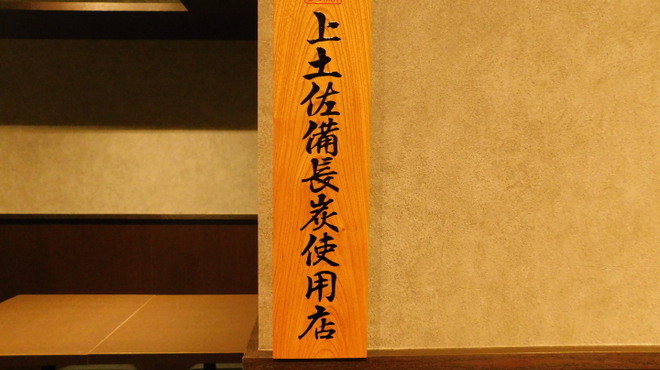 上土佐備長炭使用店